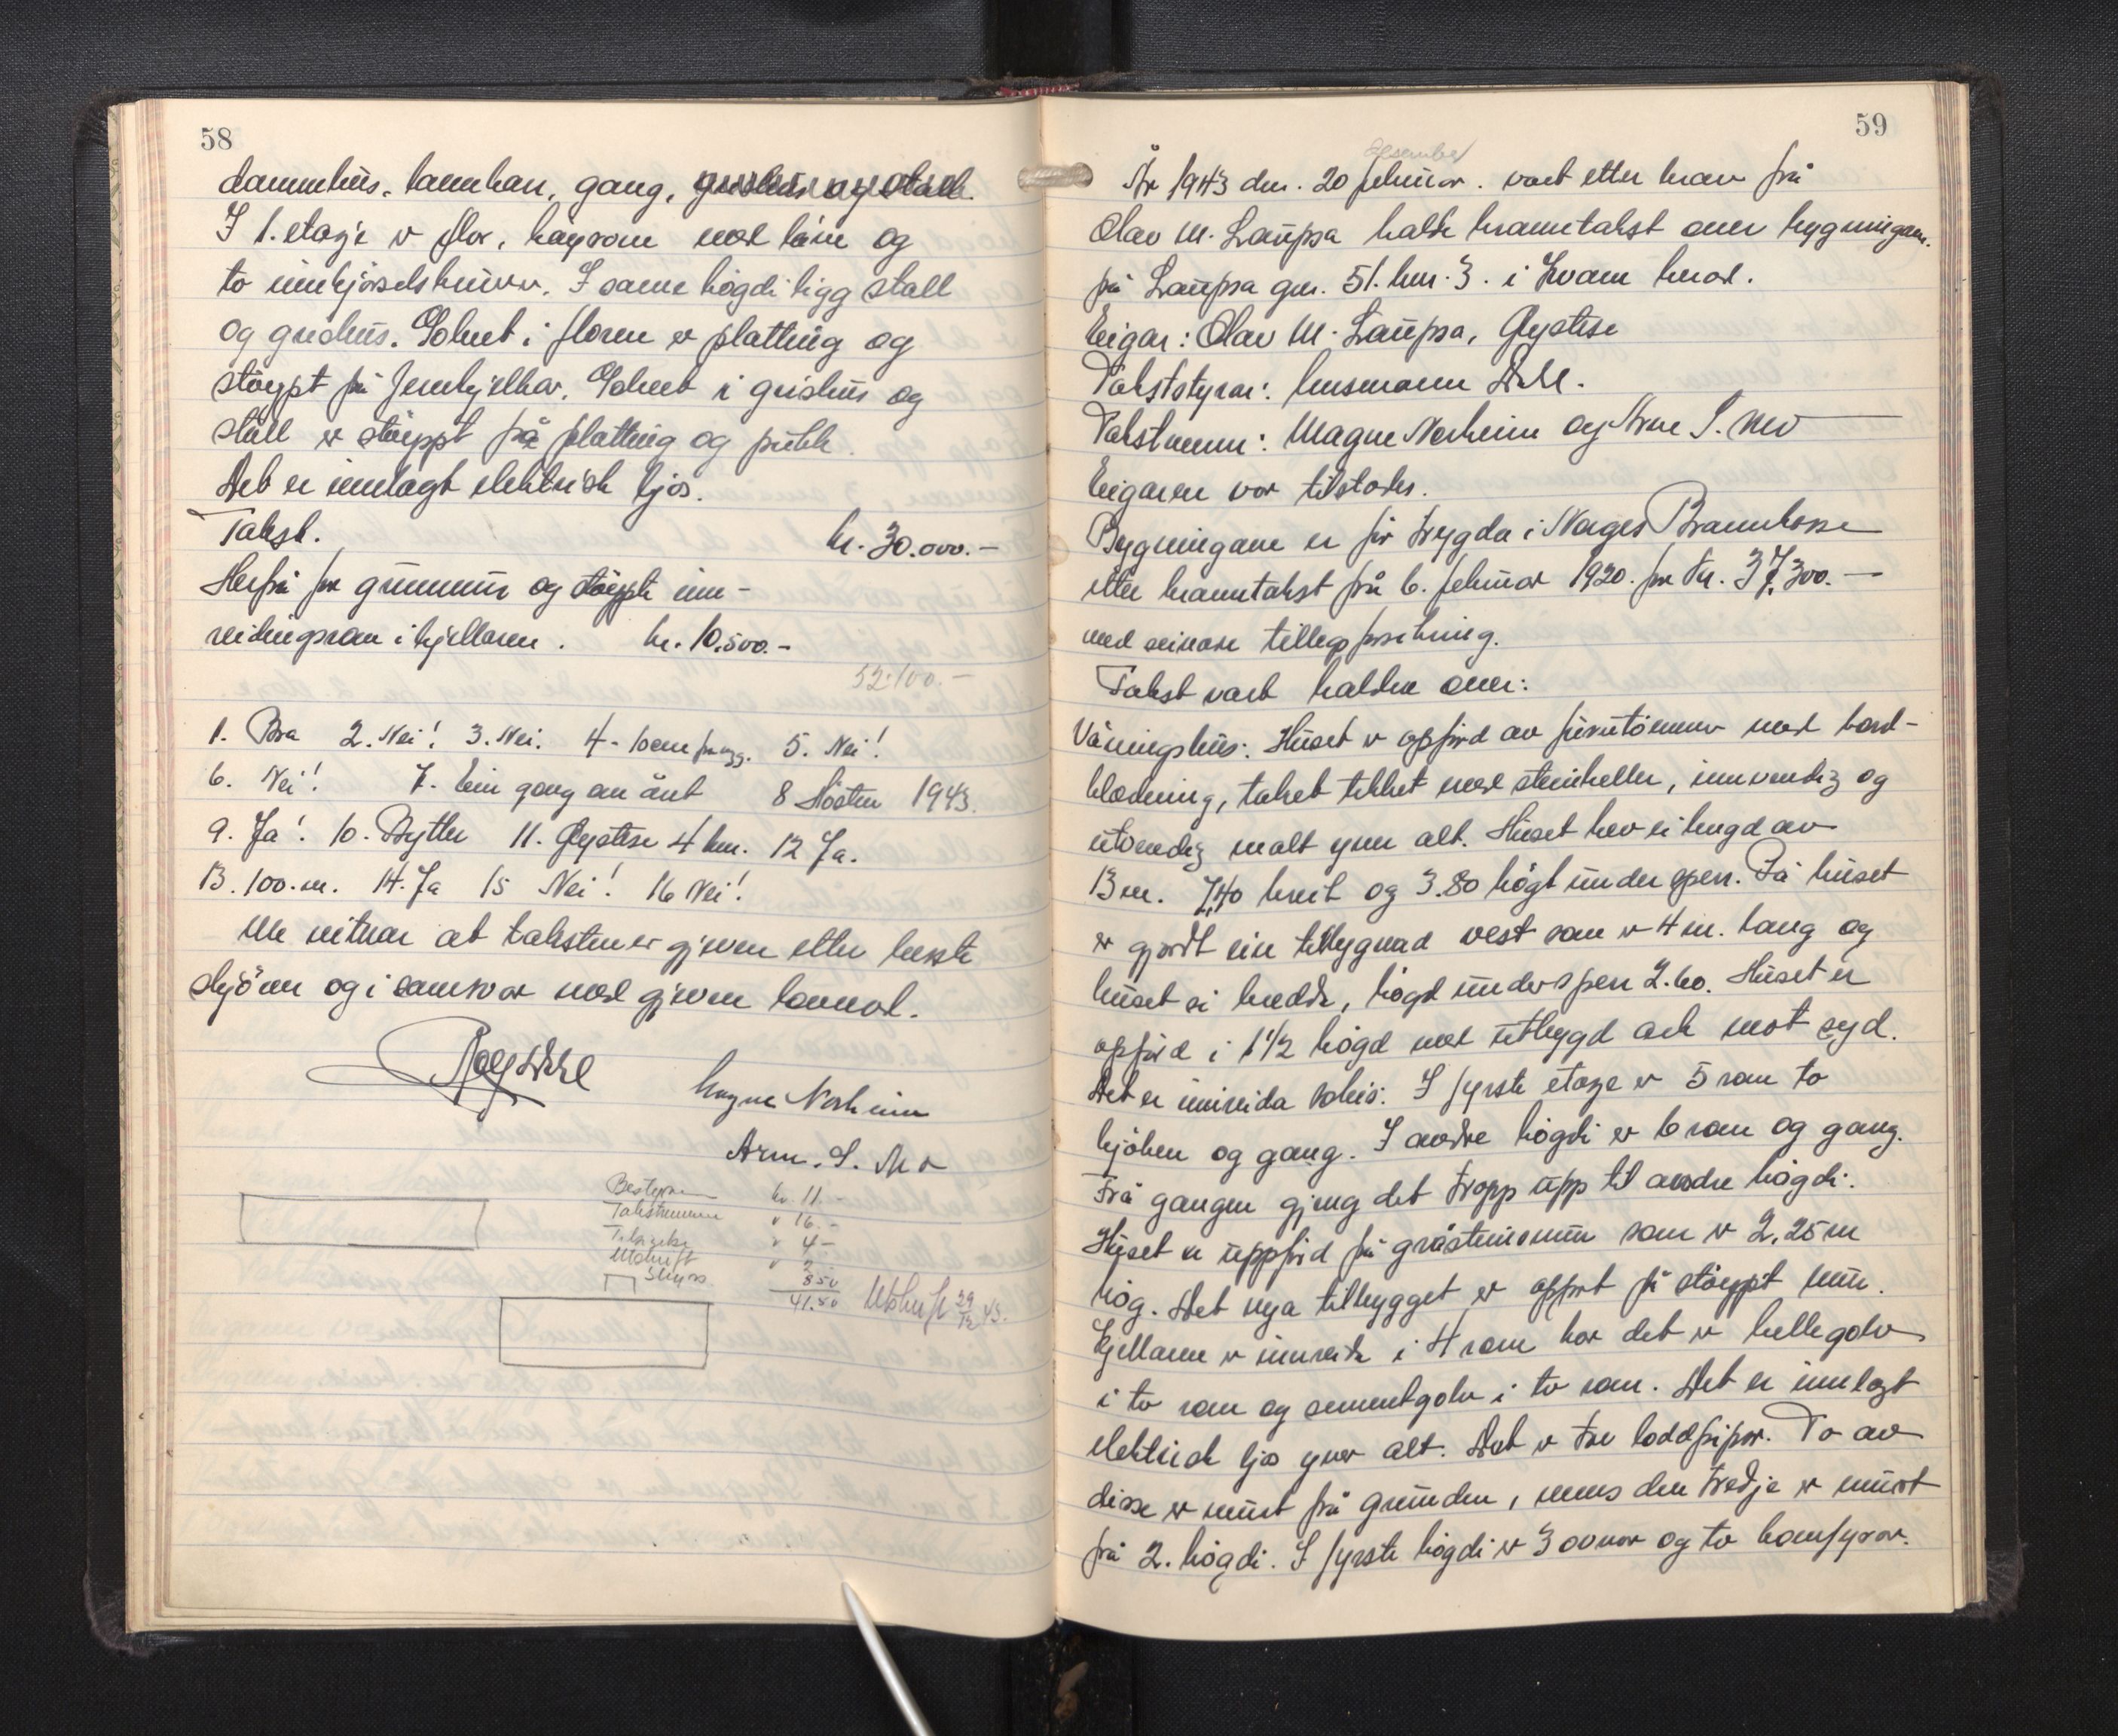 58
dammhus, lannkar, gang, grishus og stall.
I 1. etasje er flor, høyrom med låve og
to innkjørselsbruer. I same høgdi ligg stall
og grishus. Golvet i floren er platting og
støypt på jernbjelkar. Golvet i grishus og
stall er støypt på platting og pukk.
Det er innlagt elektrisk ljos.
Takst. kr. 30.000.-
Herfrå for grunnmur og støypte inn-
reidingsrom i kjellaren. kr. 10.500.-
52.100.-
1. Bra 2. Nei! 3. Nei. 4. 5. Nei!
6. Nei! 7. Ein gang om året 8 Hösten 1943.
9. Ja! 10. Bytter 11. Øystese 4 km. 12 Ja.
13. 100.m. 14. Ja 15 Nei! 16 Nei!
Me vitnar at taksten er gjeven etter beste
skjönn og i samsvar med gjeven lovnad.
Magne Norheim
Arne. S. Mo
Bestyrar kr. 11.-
Takstmenn " 16.-
" 4-
Utskrift " 2.-
Skyss 8.50
41.50 Utskrift 29/12 43.
59
desember
År 1943 den. 20 februar. vart etter krav frå
Olav M. Laupsa halde branntakst over bygningane.
på Laupsa gnr. 51. bnr. 3. i Kvam herad.
Eigar: Olav M. Laupsa, Øystese
Takststyrar: lensmann Dahl.
Takstmenn: Magne Norheim og Arne S. Mo
Eigaren var tilstades.
Bygningane er för trygda i Norges Brannkasse
etter branntakst frå 6. februar 1920. for kr. 37.300.-
med seinare tilleggsforsikring.
Takst vart halden over:
Våningshus: Huset er oppförd av furutömmer med bord-
klædning, taket tekket med steinheller, innvendig og
utvendig malt yver alt. Huset hev ei lengd av
13 m. 7,40 breit og 3.80 högt under sperr. På huset
er gjordt ein tilbygnad vest som er 4 m. lang og
huset si bredde, högd under sperr 2.60. Huset er
oppförd i 1 1/2 högd med utbygd ark mot syd.
Det er innreida soleis: I fyrste etasje er 5 rom to
kjöken og gang. I andre högdi er 6 rom og gang.
Frå gangen gjeng det tropp upp til andre högdi.
Huset er uppförd på gråsteinsmur som er 2,25 m
hög. Det nye tilbygget er oppført på støypt mur.
Kjellaren er innreida i 4 rom kor det er hellegolv
i to rom og sementgolv i to rom. Det er innlagt
elektrisk ljos yver alt. Det er tre loddpipor. To av
disse er murt frå grunnen, mens den tredje er murt
frå 2. högdi. I fyrste högdi er 3 ovnar og to komfyrar.